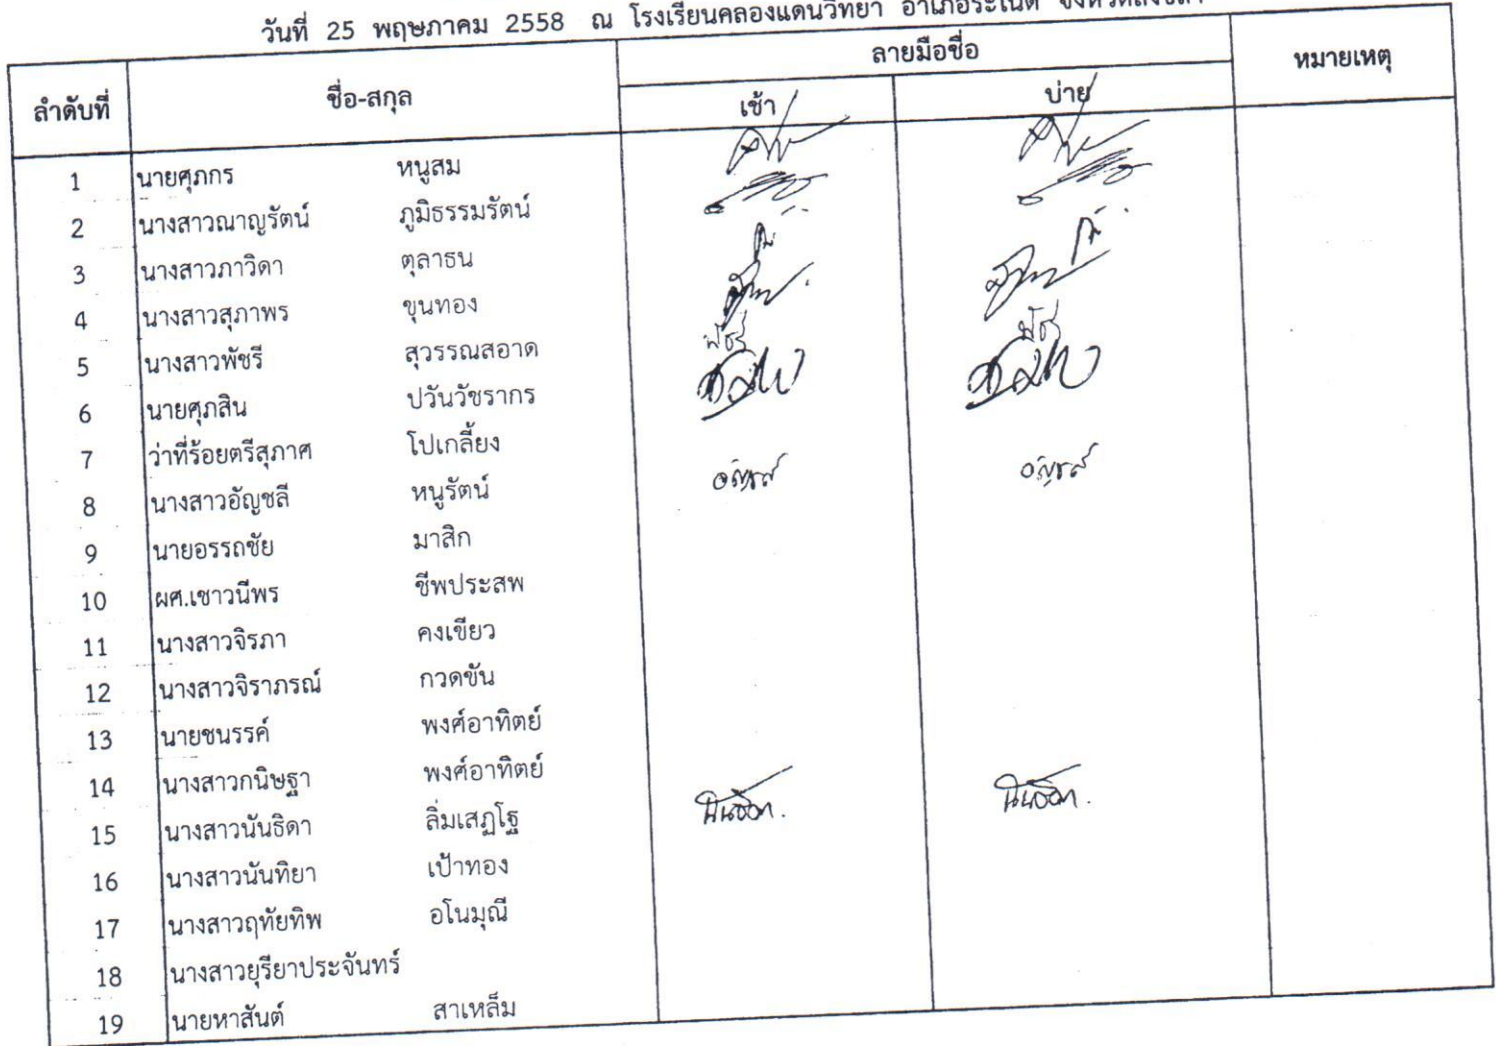 วันที่ 25 พฤษภาคม 2558 ณ โรงเรียนคลองแดนวิทยา อำเภอระโนด จังหวัดสงขลา
ลำดับที่ ชื่อ-สกุล ลายมือชื่อ หมายเหตุ
เช้า บ่าย
1 นายศุภกร หนูสม
2 นางสาวณาญรัตน์ ภูมิธรรมรัตน์
3 นางสาวภาวิดา ตุลาธน
4 นางสาวสุภาพร ขุนทอง
5 นางสาวพัชรี สุวรรณสอาด พัชรี พัชรี
6 นายศุภสิน ปวันวัชรากร
7 ว่าที่ร้อยตรีสุภาศ โปเกลี้ยง
8 นางสาวอัญชลี หนูรัตน์ อัญชลี อัญชลี
9 นายอรรถชัย มาสิก
10 ผศ.เชาวนีพร ชีพประสพ
11 นางสาวจิรภา คงเขียว
12 นางสาวจิราภรณ์ กวดขัน
13 นายชนรรค์ พงศ์อาทิตย์
14 นางสาวกนิษฐา พงศ์อาทิตย์
15 นางสาวนันธิดา ลิ่มเสฏโฐ นันธิดา. นันธิดา.
16 นางสาวนันทิยา เป้าทอง
17 นางสาวฤทัยทิพ อโนมุณี
18 นางสาวยุรียาประจันทร์
19 นายหาสันต์ สาเหล็ม